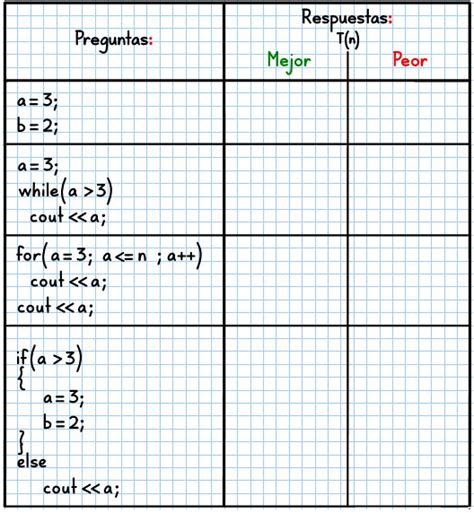 Preguntas:
Respuestas:
T(n)
Mejor
Peor
a = 3;
b = 2;
a = 3;
while(a >3)
cout <<a;
for(a= 3; a <= n ; a++)
cout <<a;
cout <<a;
if(a >3)
{
a = 3;
b = 2;
}
else
cout <<a;